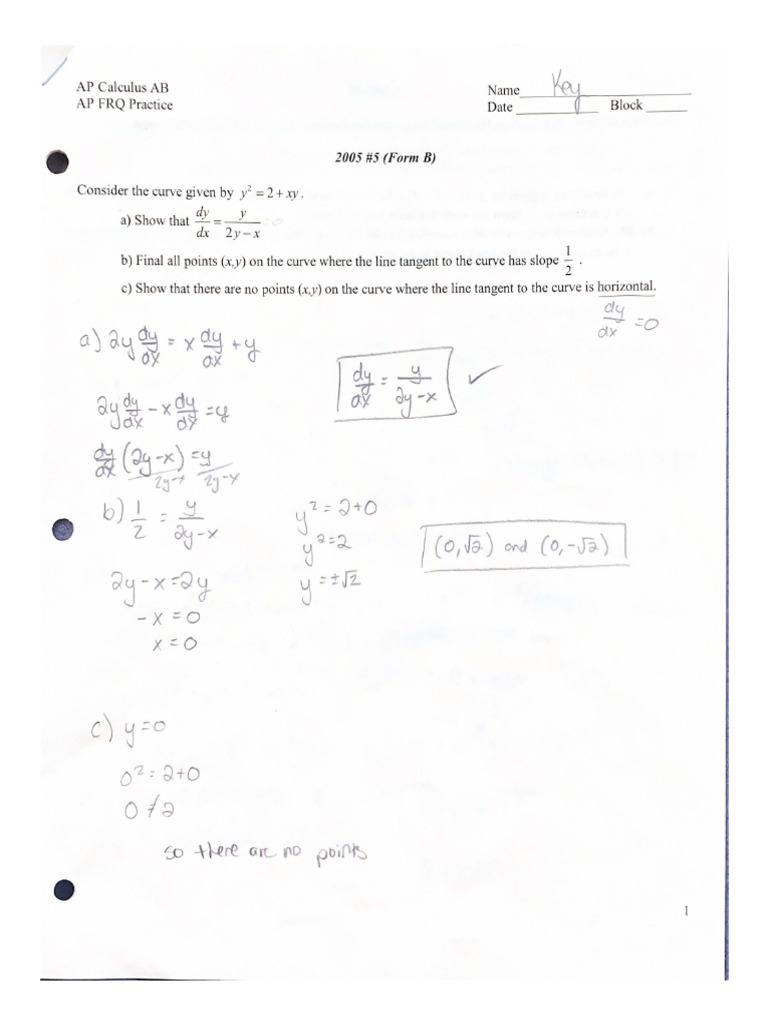 AP Calculus AB
AP FRQ Practice
Name Key
Date Block
2005 #5 (Form B)
Consider the curve given by y² = 2 + xy.
a) Show that dy/dx = y/(2y − x)
b) Final all points (x,y) on the curve where the line tangent to the curve has slope 1/2 .
c) Show that there are no points (x,y) on the curve where the line tangent to the curve is horizontal.
dy/dx = 0
a) 2y dy/dx = x dy/dx + y
2y dy/dx − x dy/dx = y
dy/dx (2y−x)/(2y−x) = y/(2y−x)
dy/dx = y/(2y−x) ✓
b) 1/2 = y/(2y−x)
2y − x = 2y
−x = 0
x = 0
y² = 2+0
y² = 2
y = ±√2
(0,√2) and (0,−√2)
c) y = 0
0² = 2+0
0 ≠ 2
so there are no points
1